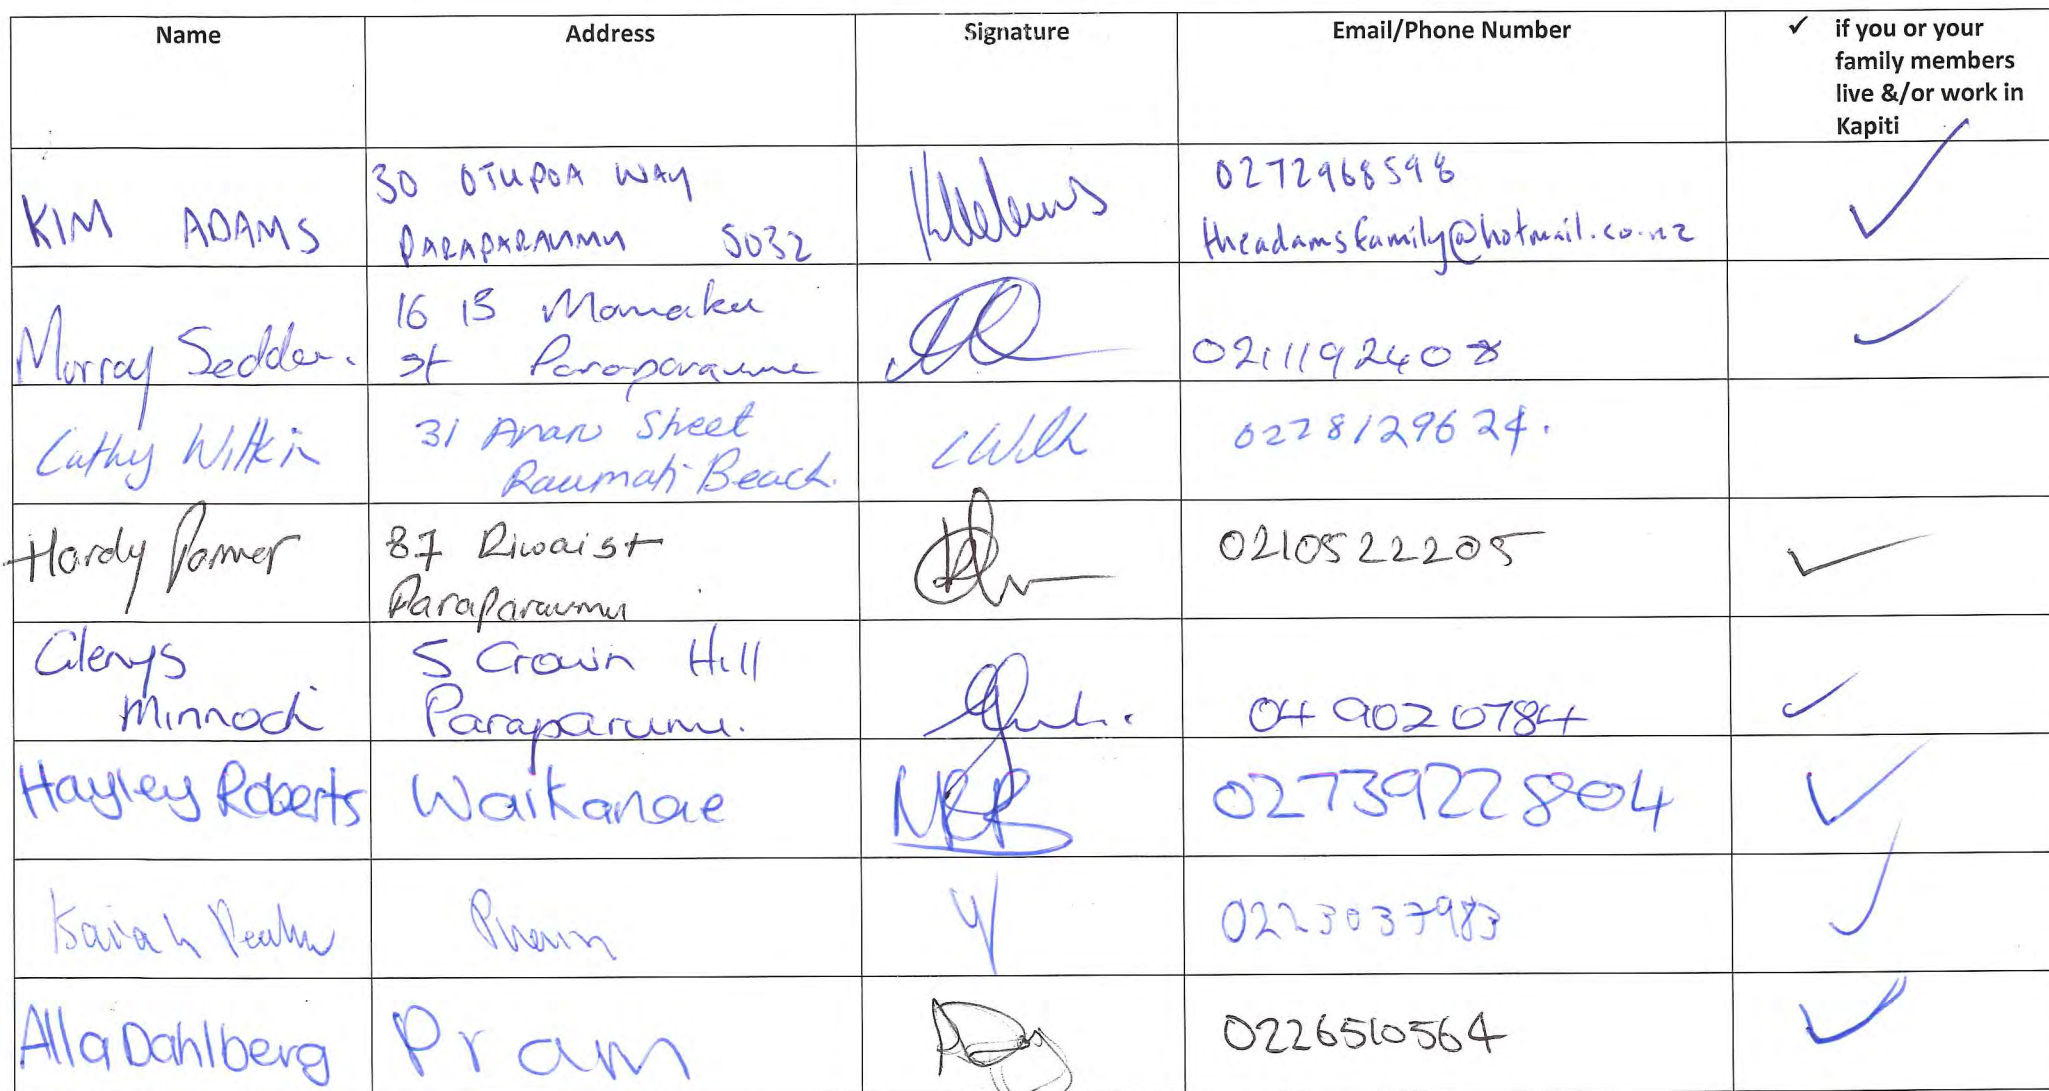 Name Address Signature Email/Phone Number ✓ if you or your
family members
live &/or work in
Kapiti
KIM ADAMS
30 OTUPOA WAY
PARAPARAUMU 5032
0272968598
theadamsfamily@hotmail.co.nz
✓
Murray Seddon.
16 B Mamaku
st Paraparaumu
0211192408
✓
Cathy Wilkin
31 Street
Raumati Beach.
CWilk
0228129624.
Hardy
87 Riwai st
Paraparaumu
0210522205
✓
Glenys
Minnoch
5 Crown Hill
Paraparumu.
04 9020784
✓
Hayley Roberts
Waikanae
0273922804
✓
Pram
0223037983
✓
Alla Dahlberg
Pram
0226510564
✓